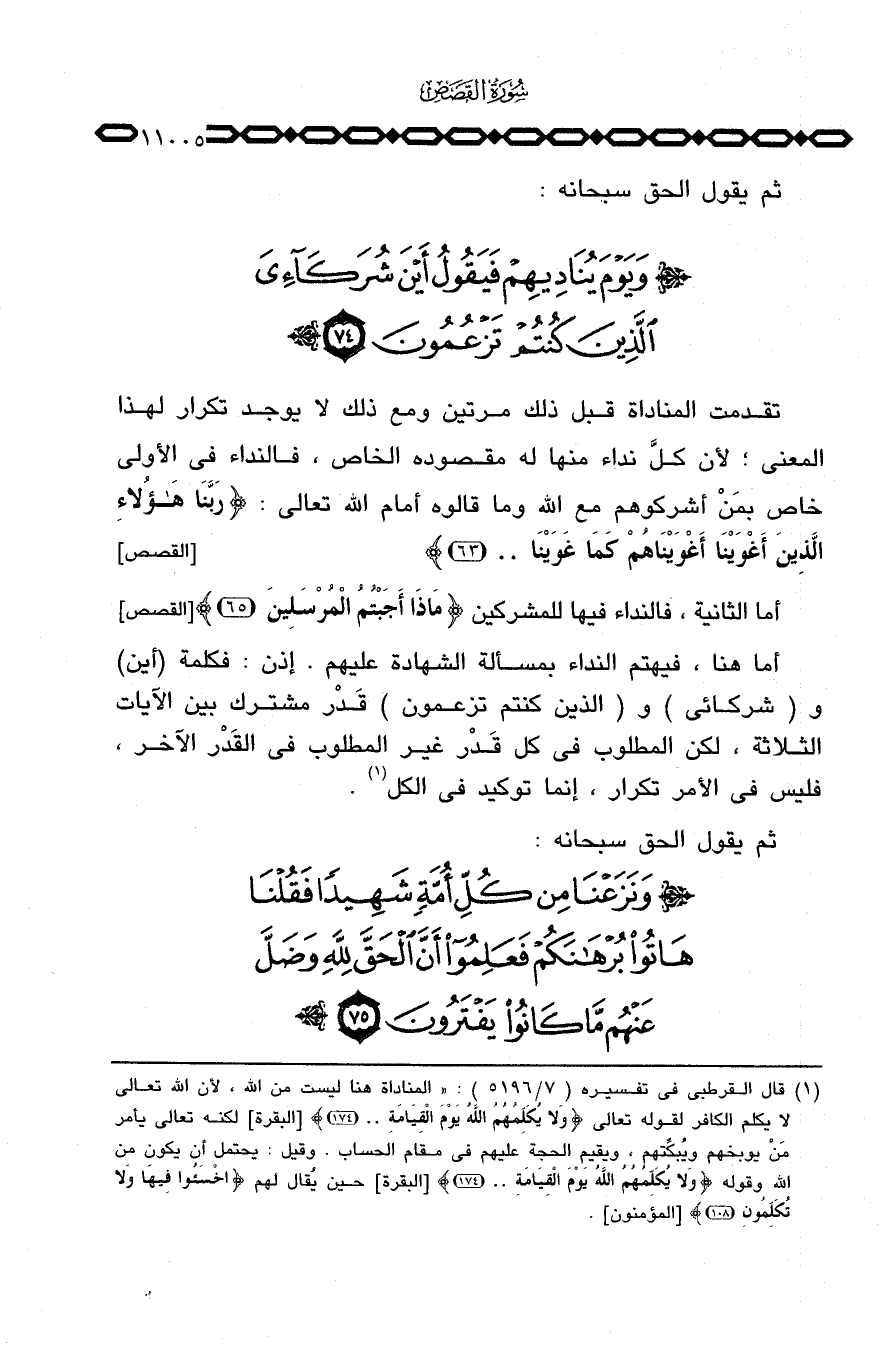 سُورَةُ القَصَصِ
١١٠٠٥
ثم يقول الحق سبحانه :
﴿ وَيَوْمَ يُنَادِيهِمْ فَيَقُولُ أَيْنَ شُرَكَآءِىَ
ٱلَّذِينَ كُنتُمْ تَزْعُمُونَ ٧٤ ﴾
تقدمت المناداة قبل ذلك مرتين ومع ذلك لا يوجد تكرار لهذا
المعنى ؛ لأن كلَّ نداء منها له مقصوده الخاص ، فالنداء فى الأولى
خاص بمَنْ أشركوهم مع الله وما قالوه أمام الله تعالى : ﴿ رَبَّنَا هَـٰؤُلَاءِ
الَّذِينَ أَغْوَيْنَا أَغْوَيْنَاهُمْ كَمَا غَوَيْنَا .. (٦٣) ﴾ [القصص]
أما الثانية ، فالنداء فيها للمشركين ﴿ مَاذَا أَجَبْتُمُ الْمُرْسَلِينَ (٦٥) ﴾ [القصص]
أما هنا ، فيهتم النداء بمسألة الشهادة عليهم . إذن : فكلمة (أين)
و ( شركائى ) و ( الذين كنتم تزعمون ) قَدْر مشترك بين الآيات
الثلاثة ، لكن المطلوب فى كل قَدْر غير المطلوب فى القَدْر الآخر ،
فليس فى الأمر تكرار ، إنما توكيد فى الكل(١) .
ثم يقول الحق سبحانه :
﴿ وَنَزَعْنَا مِن كُلِّ أُمَّةٍ شَهِيدًا فَقُلْنَا
هَاتُوا۟ بُرْهَـٰنَكُمْ فَعَلِمُوٓا۟ أَنَّ ٱلْحَقَّ لِلَّهِ وَضَلَّ
عَنْهُم مَّا كَانُوا۟ يَفْتَرُونَ ٧٥ ﴾
(١) قال القرطبى فى تفسيره ( ٥١٩٦/٧ ) : « المناداة هنا ليست من الله ، لأن الله تعالى
لا يكلم الكافر لقوله تعالى ﴿ وَلَا يُكَلِّمُهُمُ اللَّهُ يَوْمَ الْقِيَامَةِ .. (١٧٤) ﴾ [البقرة] لكنه تعالى يأمر
مَنْ يوبخهم ويُبكِّتهم ، ويقيم الحجة عليهم فى مقام الحساب . وقيل : يحتمل أن يكون من
الله وقوله ﴿ وَلَا يُكَلِّمُهُمُ اللَّهُ يَوْمَ الْقِيَامَةِ .. (١٧٤) ﴾ [البقرة] حين يُقال لهم ﴿ اخْسَئُوا فِيهَا وَلَا
تُكَلِّمُونِ (١٠٨) ﴾ [المؤمنون] .